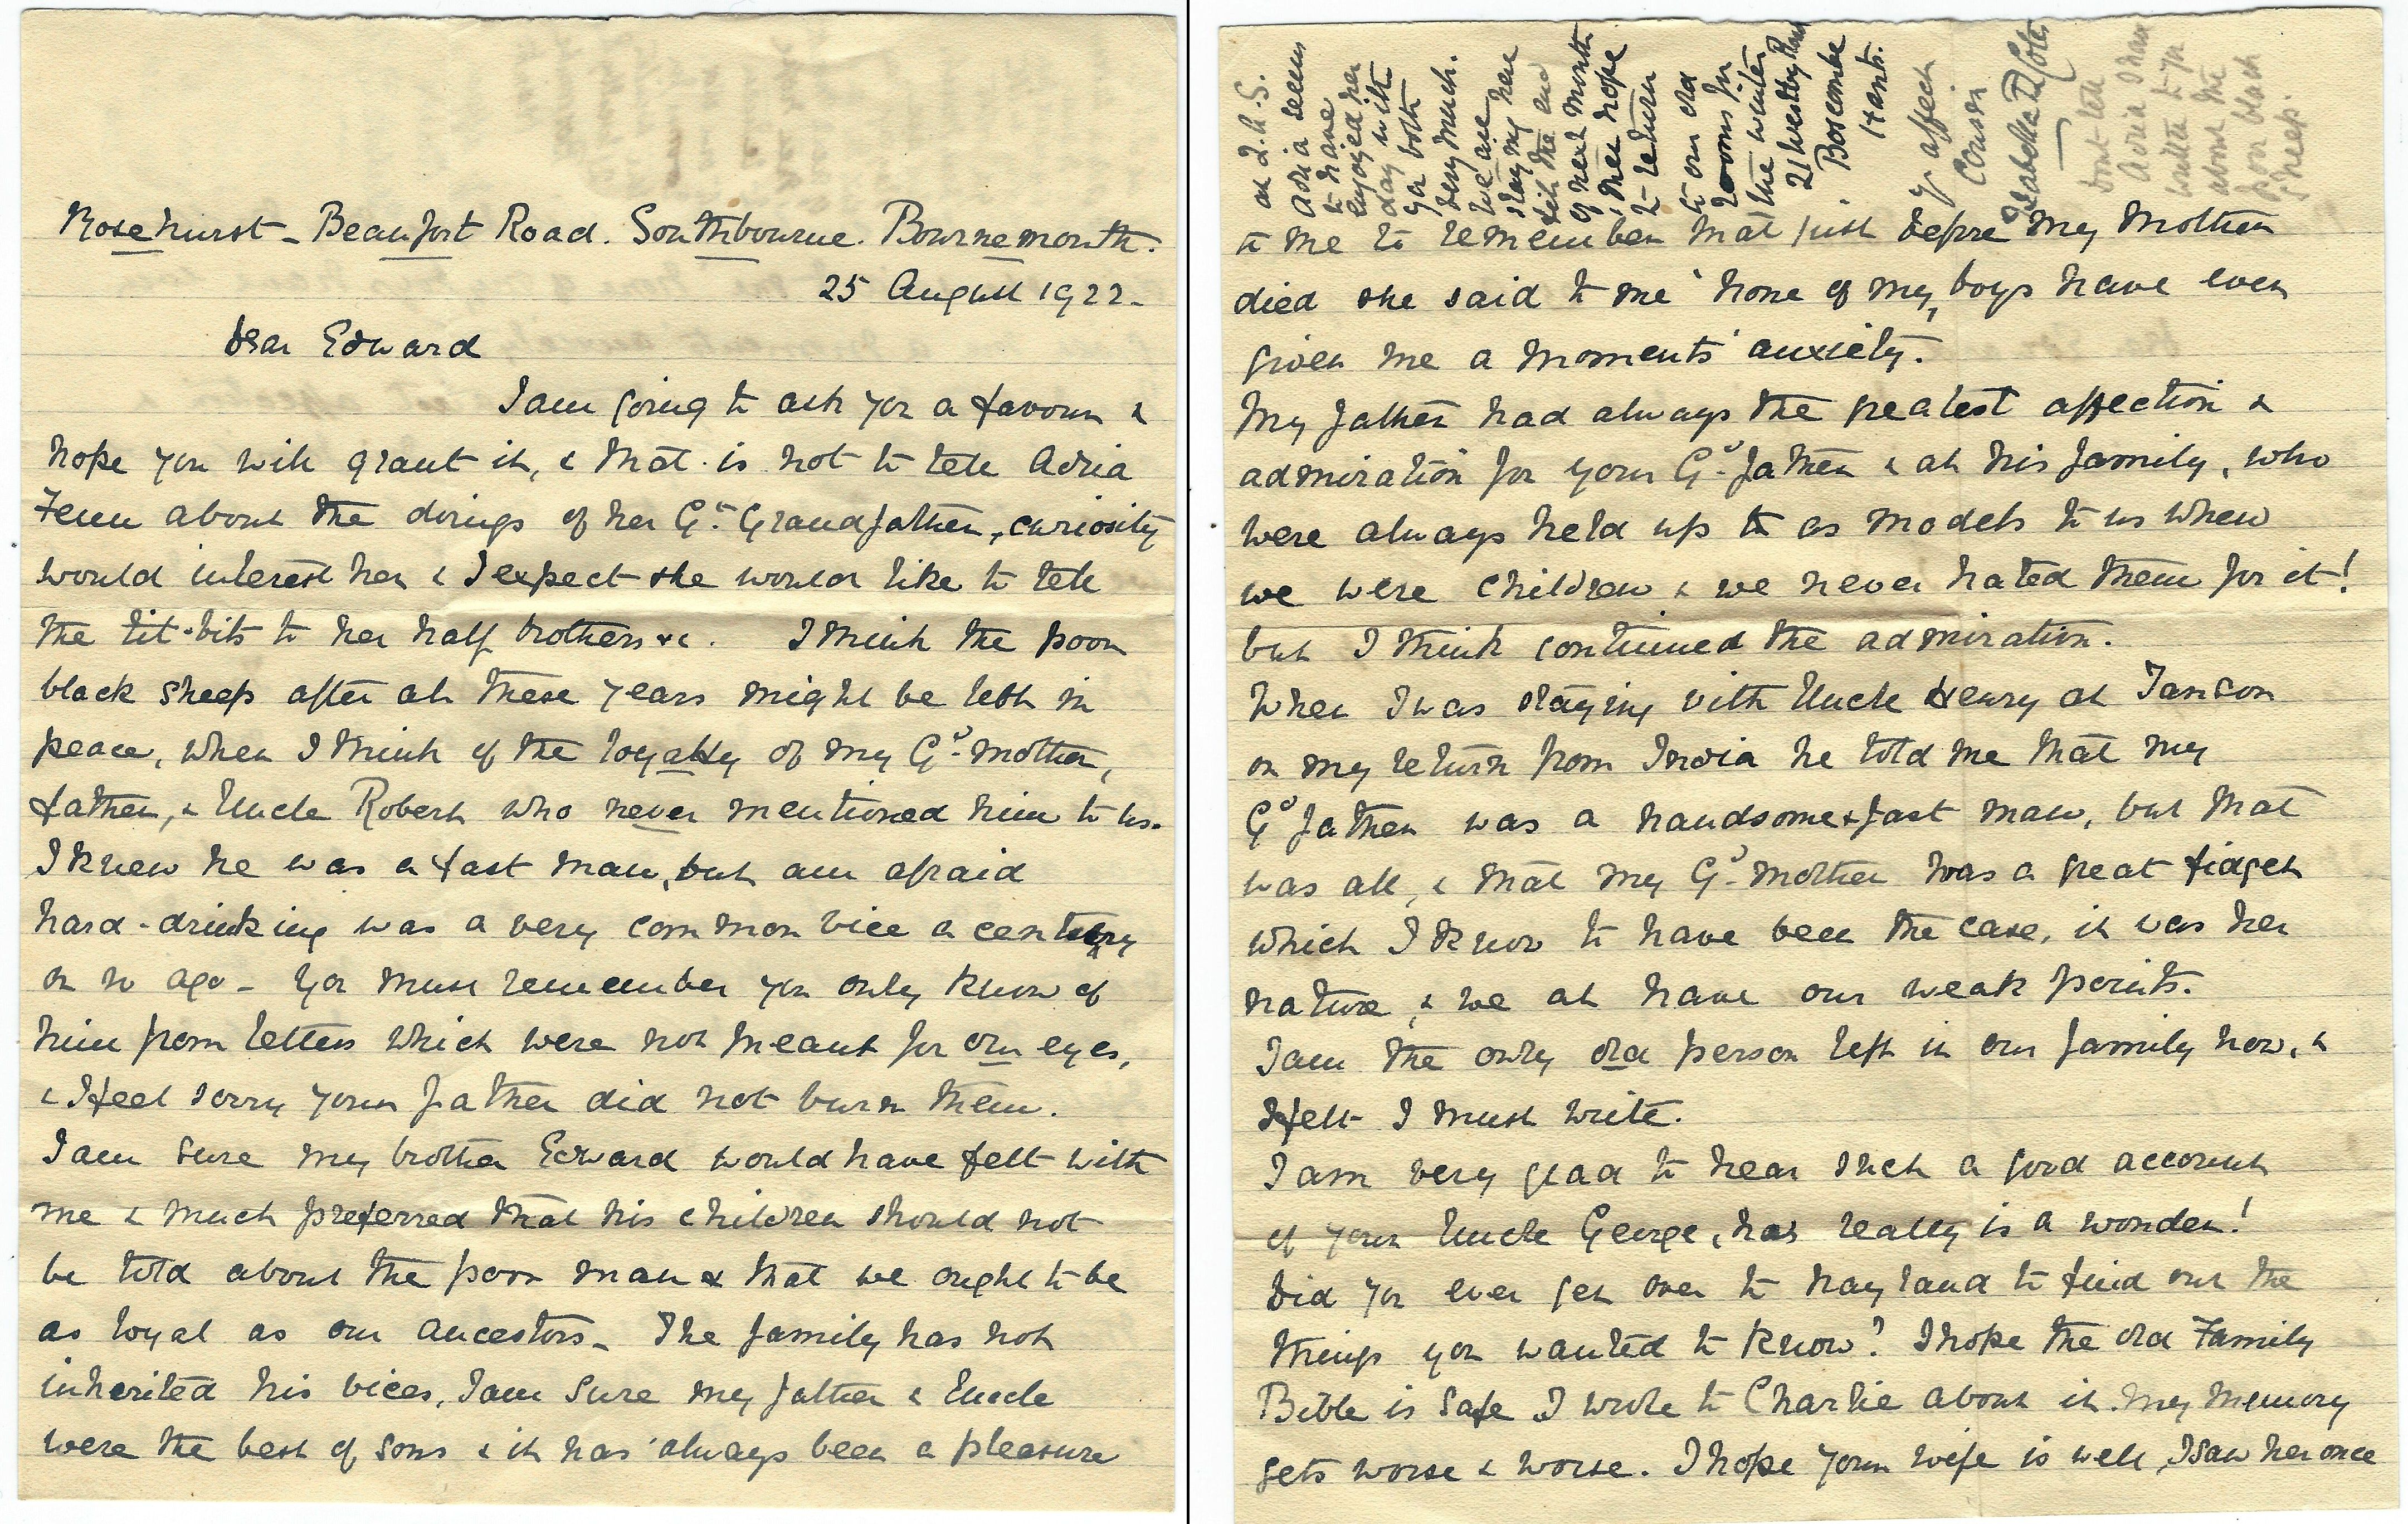 Rosehurst - Beaufort Road. Southbourne. Bournemouth.
25 August 1922.
Dear Edward
I am going to ask you a favour &
hope you will grant it, & that is not to tell Adria
Fenn about the doings of her Gt. Grandfather, curiosity
would interest her & I expect she would like to tell
the tit-bits to her half brothers &c. I think the poor
black sheep after all these years might be left in
peace, when I think of the loyalty of my Gd- mother,
father, & Uncle Robert who never mentioned him to us.
I knew he was a fast man, but am afraid
hard-drinking was a very common vice a century
or so ago - You must remember you only know of
him from letters which were not meant for our eyes,
& I feel sorry your father did not burn them.
I am sure my brother Edward would have felt with
me & much preferred that his children should not
be told about the poor man & that we ought to be
as loyal as our ancestors - The family has not
inherited his vices, I am sure my father & Uncle
were the best of sons & it has always been a pleasure
to me to remember that just before my Mother
died she said to me 'None of my boys have ever
given me a moments' anxiety.'
My father had always the greatest affection &
admiration for your Gd- father & all his family, who
were always held up to as models to us when
we were children & we never hated them for it!
but I think continued the admiration.
When I was staying with Uncle Henry at
on my return from India he told me that my
Gd father was a handsome & fast man, but that
was all, & that my Gd- mother was a great fidget
which I know to have been the case, it was her
nature, & we all have our weak points.
I am the only old person left in our family now, &
I felt I must write.
I am very glad to hear such a good account
of your Uncle George, has really is a wonder!
Did you ever get over to Nayland to find out the
things you wanted to know? I hope the old Family
Bible is safe I wrote to Charlie about it. My memory
gets worse & worse. I hope your wife is well, I saw her once
at Q.A.S.
Adria seems
to have
enjoyed her
day with
you both
very much.
We are
staying here
till the end
of next month
& then hope
to return
to our old
rooms for
the winter
21 Westby Road
Boscombe
Hants.
Yr affect
Cousin
Isabella Cole
Dont tell
Adria I have
written to you
about the
poor black
sheep.